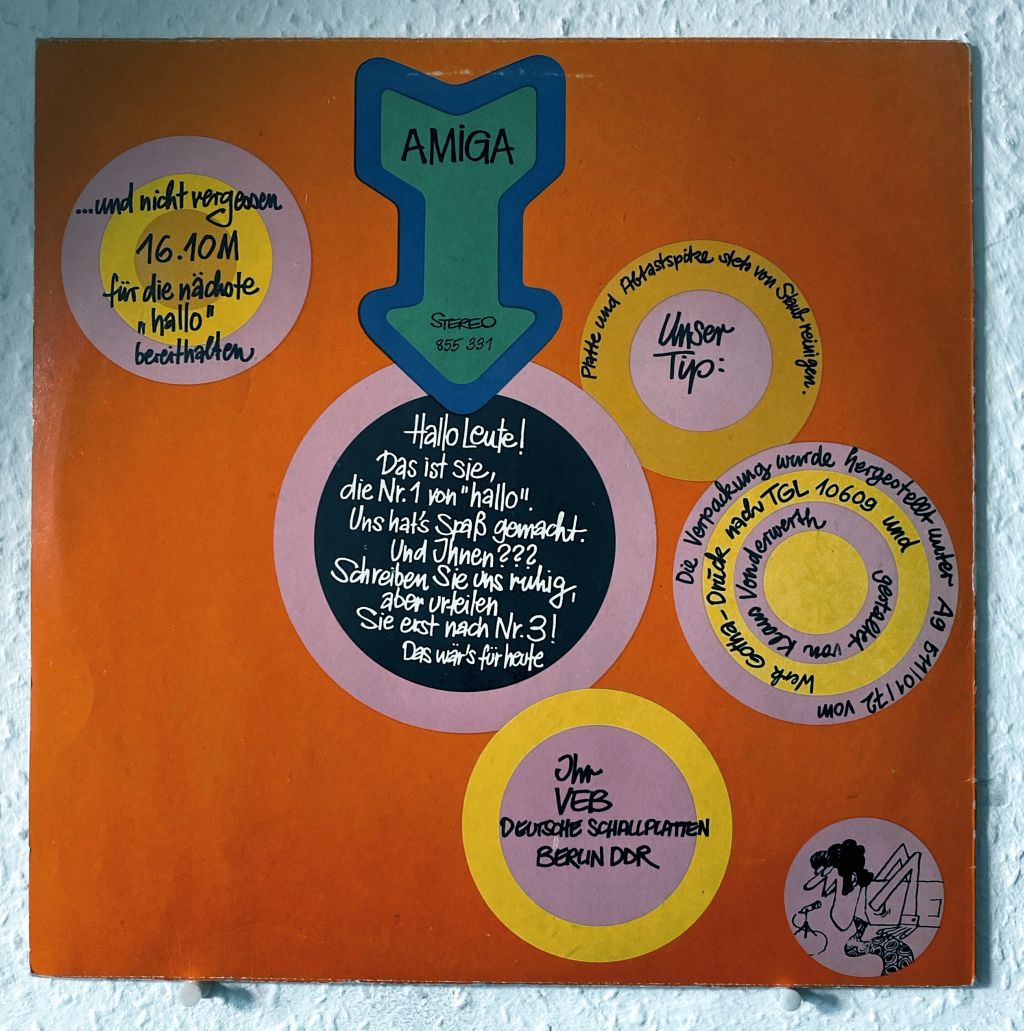 AMiGA
STEREO
855 331
...und nicht vergessen
16.10M
für die nächste
„hallo"
bereithalten
Platte und Abtastspitze stets von Staub reinigen.
Unser
Tip:
Hallo Leute!
Das ist sie,
die Nr.1 von "hallo".
Uns hat's Spaß gemacht.
Und Ihnen???
Schreiben Sie uns ruhig,
aber urteilen
Sie erst nach Nr.3!
Das wär's für heute
Die Verpackung wurde hergestellt unter Ag 511/01/72 vom
Werk Gotha-Druck nach TGL 10609 und
gestaltet von Klaus Vonderwerth
Ihr
VEB
DEUTSCHE SCHALLPLATTEN
BERLIN DDR